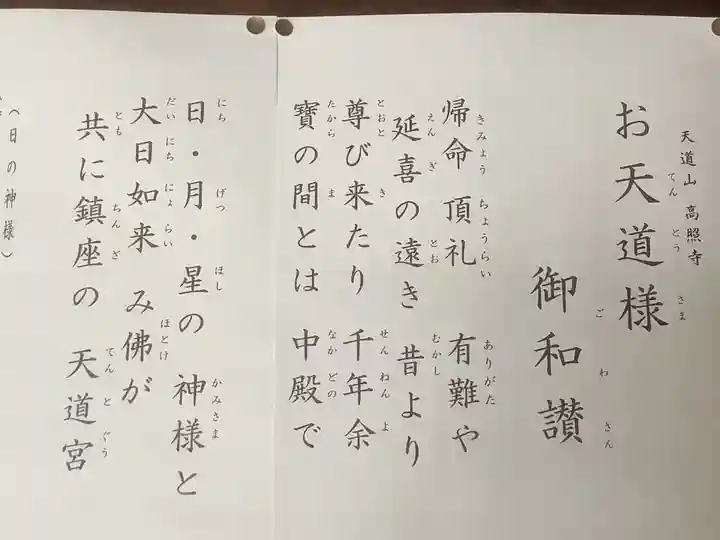 天道山 高照寺
お天道様
御和讃
帰命 頂礼 有難や
延喜の遠き 昔より
尊び来たり 千年余
寶の間とは 中殿で
日・月・星の 神様と
大日如来 み佛が
共に鎮座の 天道宮
(日の神様)